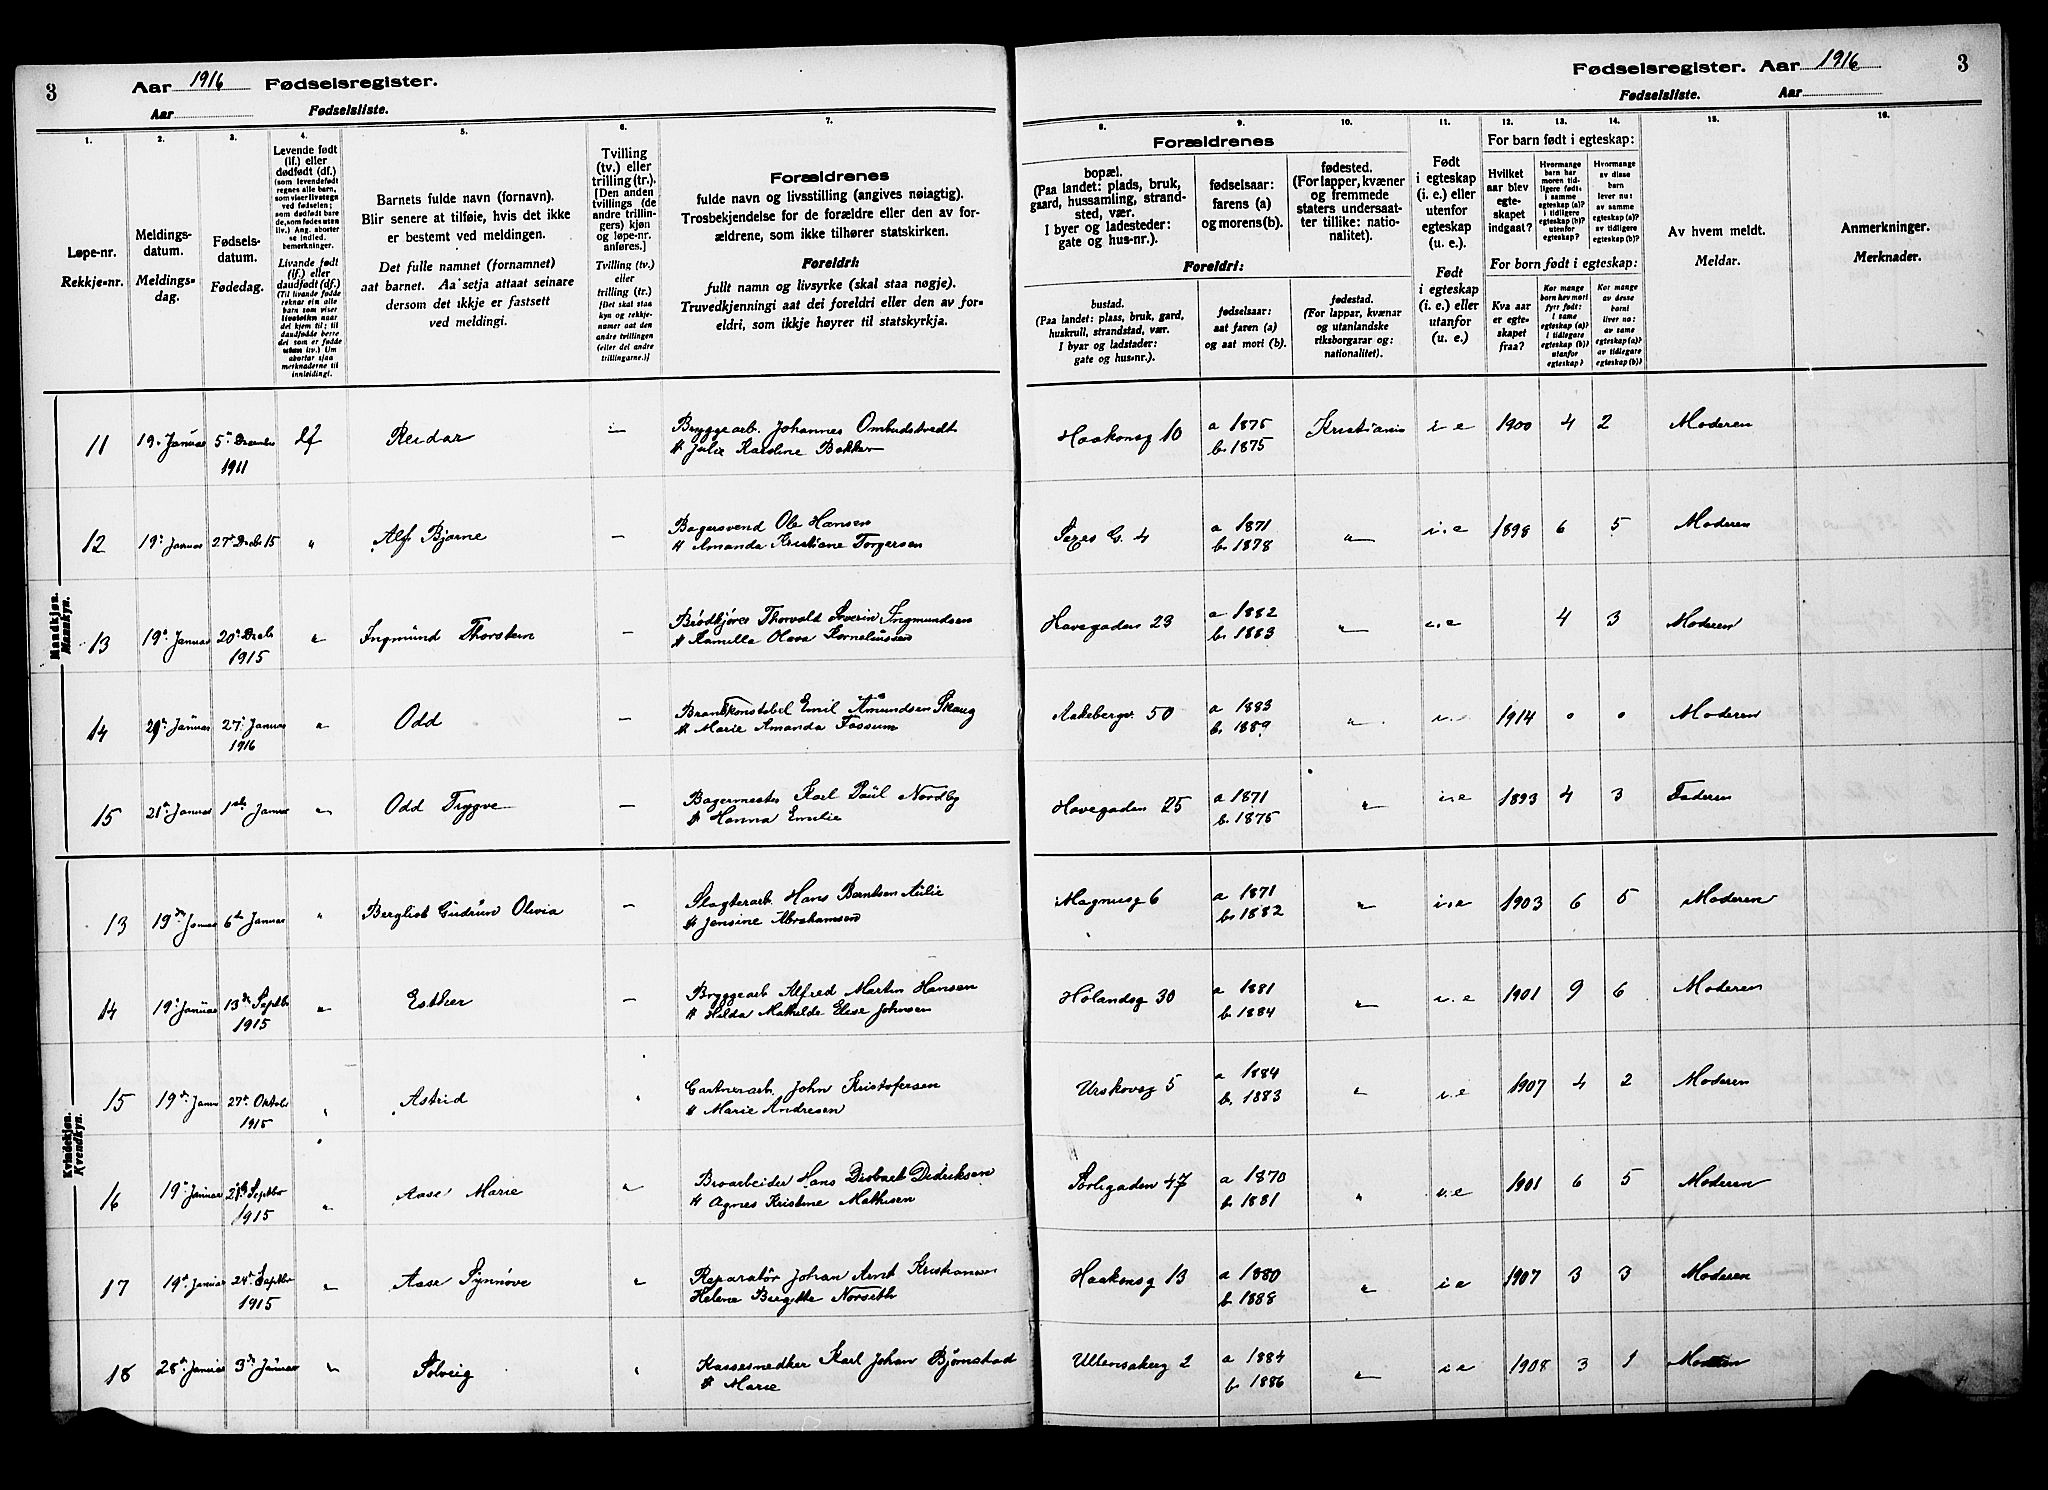 3 Aar 1916 Fødselsregister.
Aar Fødselsliste.
Fødselsregister. Aar 1916 3
Fødselsliste. Aar
1. 2. 3. 4. 5. 6. 7. 8. 9. 10. 11. 12. 13. 14. 15. 16.
Løpe-nr.
Rekkje-nr.
Meldings-
datum.
Meldings-
dag.
Fødsels-
datum.
Fødedag.
Levende født
(lf.) eller
dødfødt (df.)
(som levendefødt
regnes alle barn,
som viser livstegn
ved fødselen;
som dødfødt bare
de, som fødes uten
liv.) Ang. aborter
se indled.
bemerkninger.
Livande født
(lf.) eller
daudfødt (df.)
(Til livande fødde
reknar ein alle
barn som viser
livsteikn naar
dei kjem til; til
daudfødde berre
dei som er fødde
utan liv.) Um
abortar sjaa
merknaderne til
innleidingi.
Barnets fulde navn (fornavn).
Blir senere at tilføie, hvis det ikke
er bestemt ved meldingen.
Det fulle namnet (fornamnet)
aat barnet. Aa setja attaat seinare
dersom det ikkje er fastsett
ved meldingi.
Tvilling
(tv.) eller
trilling (tr.).
(Den anden
tvillings (de
andre trillin-
gers) kjøn
og løpe-nr.
anføres.)
Tvilling (tv.)
eller
trilling (tr.)
(Det skal staa
kyn og rekkje-
numer aat den
andre tvillingen
(eller dei andre
trillingarne.))
Forældrenes
fulde navn og livsstilling (angives nøiagtig).
Trosbekjendelse for de forældre eller den av for-
ældrene, som ikke tilhører statskirken.
Foreldri:
fullt namn og livsyrke (skal staa nøgje).
Truvedkjenningi aat dei foreldri eller den av for-
eldri, som ikkje høyrer til statskyrkja.
Forældrenes
bopæl.
(Paa landet: plads, bruk,
gaard, hussamling, strand-
sted, vær.
I byer og ladesteder:
gate og hus-nr.).
fødselsaar:
farens (a)
og morens (b).
fødested.
(For lapper, kvæner
og fremmede
staters undersaat-
ter tillike: natio-
nalitet).
Foreldri:
bustad.
(Paa landet: plass, bruk, gard,
huskrull, strandstad, vær.
I byar og ladstader:
gate og hus-nr.).
fødselsaar:
aat faren (a)
og aat mori (b).
fødestad.
(For lappar, kvænar
og utanlandske
riksborgarar og:
nationalitet).
Født
i egteskap
(i. e.) eller
utenfor
egteskap
(u. e.).
Født
i egteskap
(i. e.) eller
utanfor
(u. e.).
For barn født i egteskap:
Hvilket
aar blev
egte-
skapet
indgaat?
Hvormange
barn har
moren tid-
ligere født:
i samme
egteskap (a)?
i tidligere
egteskap (b)?
utenfor
egteskap?
Hvormange
av disse
barn
lever nu:
av samme
egteskap (a)?
av tidligere
egteskap (b)?
For born født i egteskap:
Kva aar
er egte-
skapet
fraa?
Kor mange
born hev mori
fyrr født:
i same
egteskap (a)?
i tidlegare
egteskap (b)?
utanfor
egteskap?
Kor mange
av desse
borni
liver no:
av same
egteskap (a)?
av tidlegare
egteskap (b)?
Av hvem meldt.
Meldar.
Anmerkninger.
Merknader.
Mandkjøn.
Mannkyn.
11 19. Januar 5te December 1911 lf Reidar — Bryggearb. Johannes Ombudstvedt Haakonsg 10 a 1875 Kristiania i e 1900 4 2 Moderen
H Julie Karoline Bakken b 1875
12 19. Januar 27 Decbr 15 " Alf Bjarne — Bagersvend Ole Hansen G. 4 a 1871 " i.e 1898 6 5 Moderen
H Amanda Kristiane Torgersen b 1878
13 19. Januar 20 Decbr 1915 " Ingmund Thorstein — Brødkjører Thorvald Severin Ingmundsen Havegaden 23 a 1882 " i.e 4 3 Moderen
H Kamilla Olava Korneliussen b 1883
14 29. Januar 27. Januar 1916 " Odd — Brandkonstabel Emil Amundsen Skaug Aakebergv. 50 a 1883 " i.e 1914 0 0 Moderen
H Marie Amanda Fossum b 1889
15 21. Januar 1ste Januar " Odd Trygve — Bagermester Karl Paul Nordby Havegaden 25 a 1871 " i.e 1893 4 3 Faderen
H Hanna Emilie b 1875
Kvindekjøn.
Kvendkyn.
13 19de Januar 6te Januar " Bergliot Gudrun Olivia — Slagterarb. Hans Berntsen Aulie Magnusg 6 a 1871 " i.e 1903 6 5 Moderen
H Jensine Abrahamsen b 1882
14 19. Januar 13de Septbr 1915 " Esther — Bryggearb Alfred Martin Hansen Hølandsg 30 a 1881 " i.e 1901 9 6 Moderen
H Hilda Mathilde Elise Johnsen b 1884
15 19de Januar 27de Oktob 1915 " Astrid " Gartnerarb. John Kristofersen Urskovg 5 a 1884 " i.e 1907 4 2 Moderen
H Marie Andresen b 1883
16 19. Januar 21de Septbr 1915 " Aase Marie " Broarbeider Hans Didriksen Sørligaden 47 a 1870 " i.e 1901 6 5 Moderen
H Agnes Kristine Mathisen b 1881
17 19. Januar 24de Septbr 1915 " Aase Synnøve " Reparatør Johan Arnt Kristiansen Haakonsg 13 a 1880 " i e 1907 3 3 Moderen
Helene Bergitte Norseth b 1888
18 28de Januar 3de Januar " Solveig " Kassesnedker Karl Johan Bjørnstad Ullensakerg 2 a 1884 " i e 1908 3 1 Moderen
H Marie b 1886